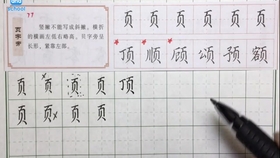 页字旁
竖撇不能写成斜撇，横折
的横画左低右略高，目字旁呈
长形，紧靠左部。
页 页 页 页 页 页
顶 顺 顾 颂 预 额
页 页 页 页 顶
页 页 页 页